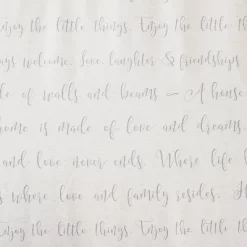 njoy the little things. Enjoy the little th
ays welcome. Love, laughter & friendships
de of walls and beams – A house
home is made of love and dreams.
and love never ends. Where life
s where love and family resides. H
njoy the little things. Enjoy the little th